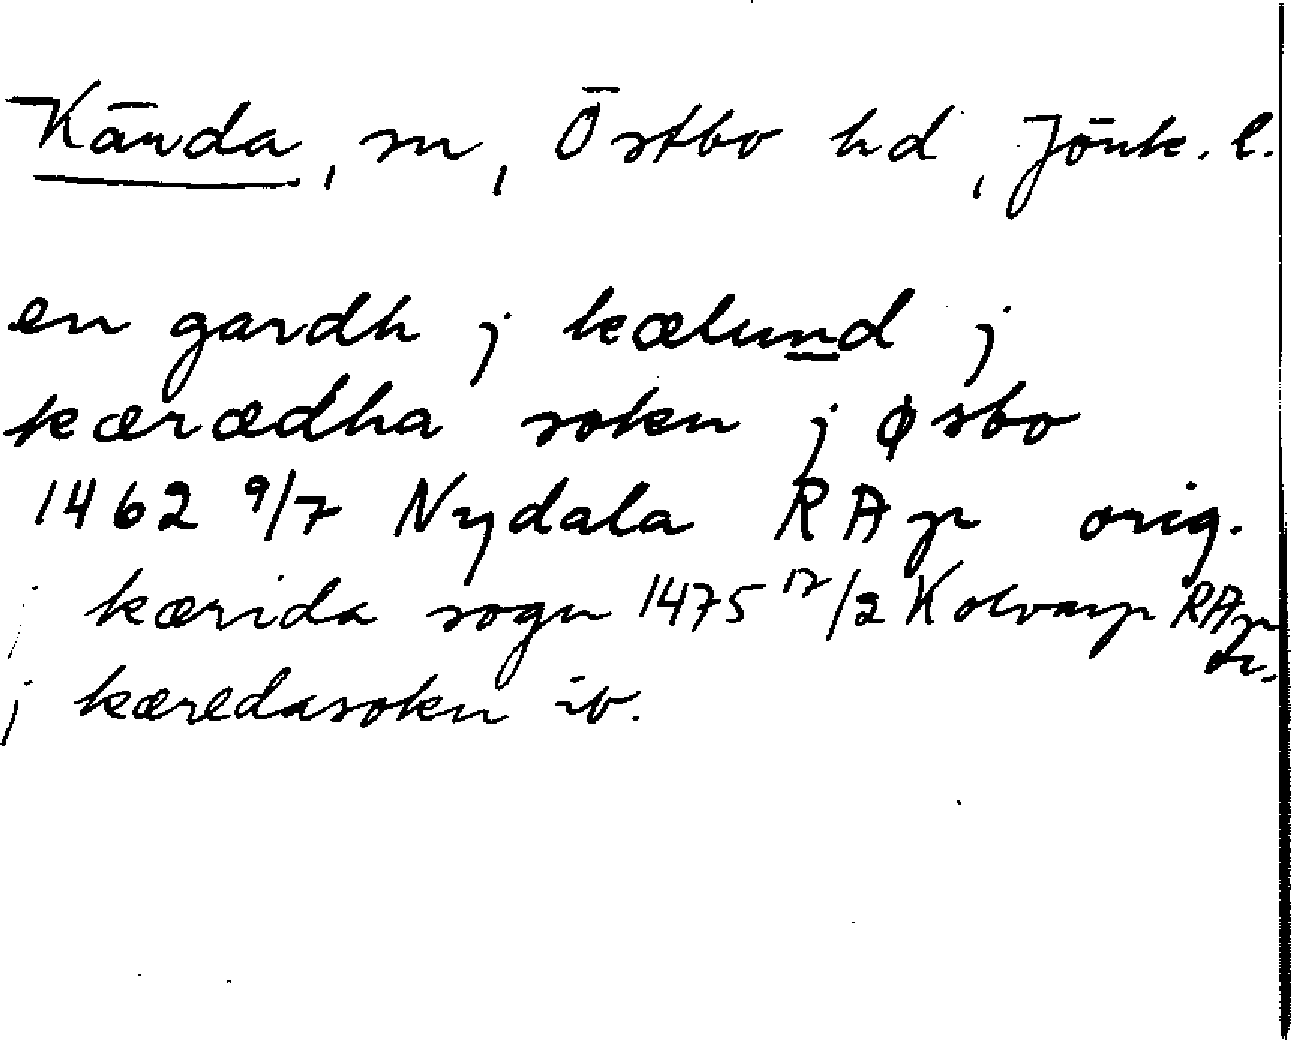 Kärda, sn, Östbo hd, Jönk. l.
en gardh j kælund j
kærædha sokn j øsbo
1462 9/7 Nydala RAp orig.
j kærida sogn 1475 17/2 Kolvarp RAp
j kæredasokn ib.